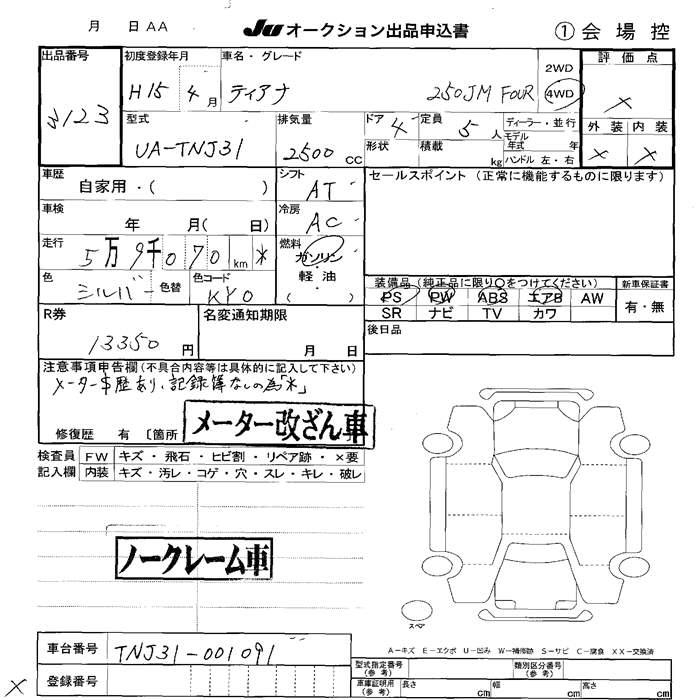 月 日 AA
JU オークション出品申込書
① 会場控
出品番号
3123
初度登録年月
H15 4月
車名・グレード
ティアナ 250JM FOUR
2WD
4WD
評価点
×
外装 内装
× ×
型式
UA-TNJ31
排気量
2500 CC
ドア 4
定員 5人
形状
積載 kg
ディーラー・並行
モデル年式 年
ハンドル 左・右
車歴
自家用・( )
シフト
AT
セールスポイント (正常に機能するものに限ります)
車検
年 月( 日)
冷房
AC
走行
5万9千070km *
燃料
ガソリン
軽・油
( )
色
シルバー
色替
色コード
KY0
装備品(純正品に限り○をつけてください)
PS PW ABS エアB AW
SR ナビ TV カワ
新車保証書
有・無
R券
13350円
名変通知期限
月 日
後日品
注意事項申告欄(不具合内容等は具体的に記入して下さい)
メーター事歴あり、記録簿なしの為「*」
メーター改ざん車
修復歴 有 〔箇所
検査員記入欄
FW キズ・飛石・ヒビ割・リペア跡・×要
内装 キズ・汚レ・コゲ・穴・スレ・キレ・破レ
ノークレーム車
スペア
A-キズ E-エクボ U-凹み W-補修跡 S-サビ C-腐食 XX-交換済
車台番号
TNJ31-001091
登録番号
型式指定番号(参考)
類別区分番号(参考)
車庫証明用(参考)
長さ cm
幅 cm
高さ cm
×